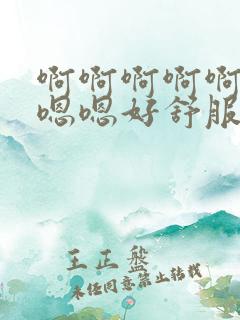 啊啊啊啊啊
嗯嗯好舒服
王正盘
未经同意禁止转载